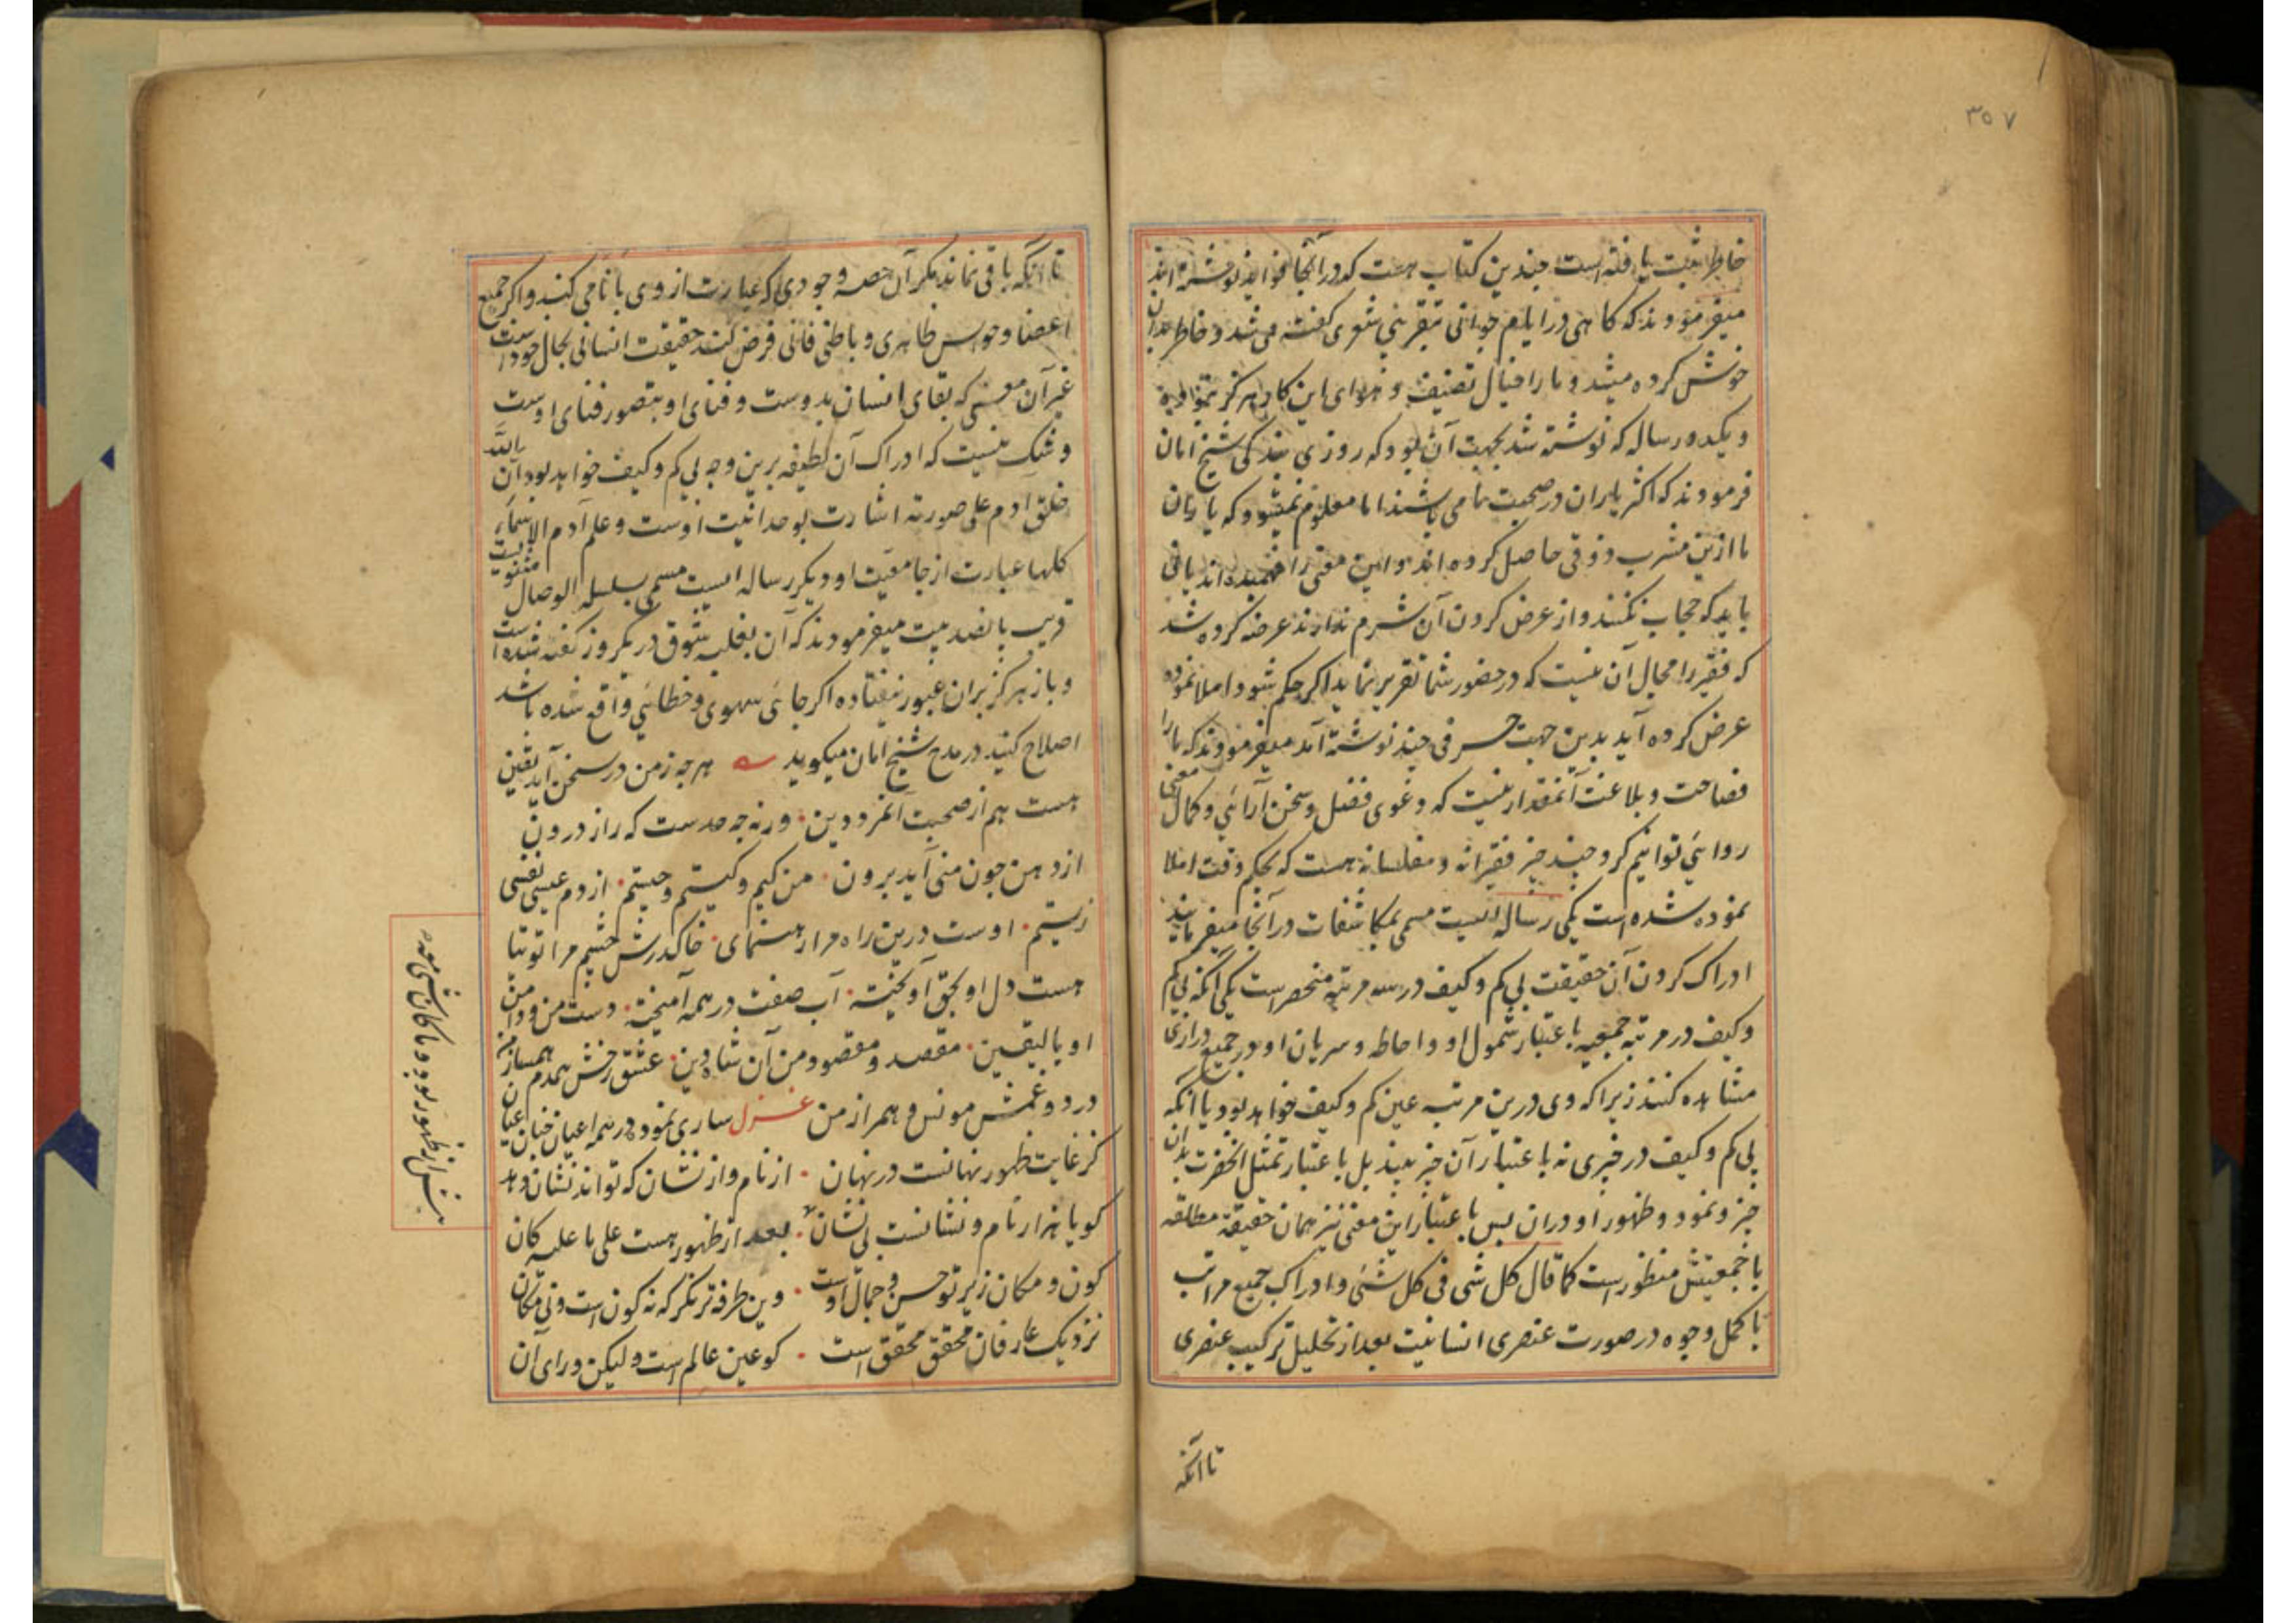 ۳۵۷
خاطر ثبت یافته است چندین کتاب هست که در آنجا فواید نوشته اند
میفرمودند که کاهی در ایام جوانی بتقریبی شعری کفته می شد و خاطر بدان
خوش کرده میشد و ما را خیال تصنیف و هوای این کار هرکز نبوده
و یکدو رساله که نوشته شد بجهت آن بود که روزی بندکی شیخ امان
فرمودند که اکثر یاران در صحبت ما می باشند اما معلوم نمیشود که یاران
ما ازین مشرب ذوقی حاصل کرده اند و این معنی را فهمیده اند یا نی
باید که حجاب نکنند و از عرض کردن آن شرم ندارند عرضه کرده شد
که فقیر را مجال آن نیست که در حضور شما تقریر نماید اکر حکم شود املا نموده
عرض کرده آید بدین جهت حرفی چند نوشته آمد میفرمودند که ما را
فصاحت و بلاغت آنمقدار نیست که دعوی فضل و سخن آرائی و کمال
روائی توانیم کرد چند چیز فقیرانه و مفلسانه هست که بحکم وقت املا
نموده شده است یکی رساله ایست مسمی بمکاشفات در آنجا میفرمایند
ادراک کردن آن حقیقت بی کم و کیف در سه مرتبه منحصر است یکی آنکه بی کم
و کیف در مرتبه جمعیه باعتبار شمول او و احاطه و سریان او در جمیع ذراری
مشاهده کنند زیرا که وی درین مرتبه عین کم و کیف خواهد بود یا آنکه
بی کم و کیف در چیزی نه باعتبار آن چیز بیند بل باعتبار تمثل آنحضرت بدان
چیز و نمود و ظهور او در ان پس باعتبار این معنی نیز همان حقیقة مطلقه
با جمعیتش منظور است کما قال کل شی فی کل شئی و ادراک جمیع مراتب
باکمل وجوه در صورت عنصری انسانیت بعد از تحلیل ترکیب عنصری
تا آنکه
تا آنکه باقی نماند مکر آن حصه وجودی که عبارت از وی بانا می کنند و اکر جمیع
اعضا و حواس ظاهری و باطنی فانی فرض کنند حقیقت انسانی بحال خود است
غیر آن معنی که بقای انسان بدوست و فنای او بتصور فنای اوست
و شک نیست که ادراک آن لطیفه برین وجه بی کم و کیف خواهد بود ان الله
خلق آدم علی صورته اشارت بوحدانیت اوست و علم آدم الاسماء
کلها عبارت از جامعیت او دیکر رساله ایست مسمی بسلسله الوصال مثنویست
قریب پانصد بیت میفرمودند که آن بغلبه شوق در یکروز کفته شده است
و باز هرکز بران عبور نیفتاده اکر جائی سهوی و خطائی واقع شده باشد
اصلاح کنید در مدح شیخ امان میکوید هر چه ز من در سخن آید یقین
هست هم از صحبت آنمرد دین ورنه چه حد ست که راز درون
از دهن چون منی آید برون من کیم و کیستم و چیستم از دم عیسی نفسی
زیستم اوست درین راه مرا رهنمای خاک درش چشم مرا توتیا
هست دل او بحق آویخته آب صفت در همه آمیخته دست من و دامن
او بالیقین مقصد و مقصود من آن شاه دین عشق رخش همدم و همساز من
درد و غمش مونس و همراز من غزل ساری نمود در همه اعیان چنان عیان
کز غایت ظهور نهانست در نهان از نام و از نشان که تواند نشان دهد
کو با هزار نام و نشانست بی نشان بعد از ظهور هست علی ما علیه کان
کون و مکان ز پرتو حسن و جمال اوست وین طرفه تر نکر که نه کون است و نی مکان
نزدیک عارفان محقق محقق است کو عین عالم است و لیکن ورای آن